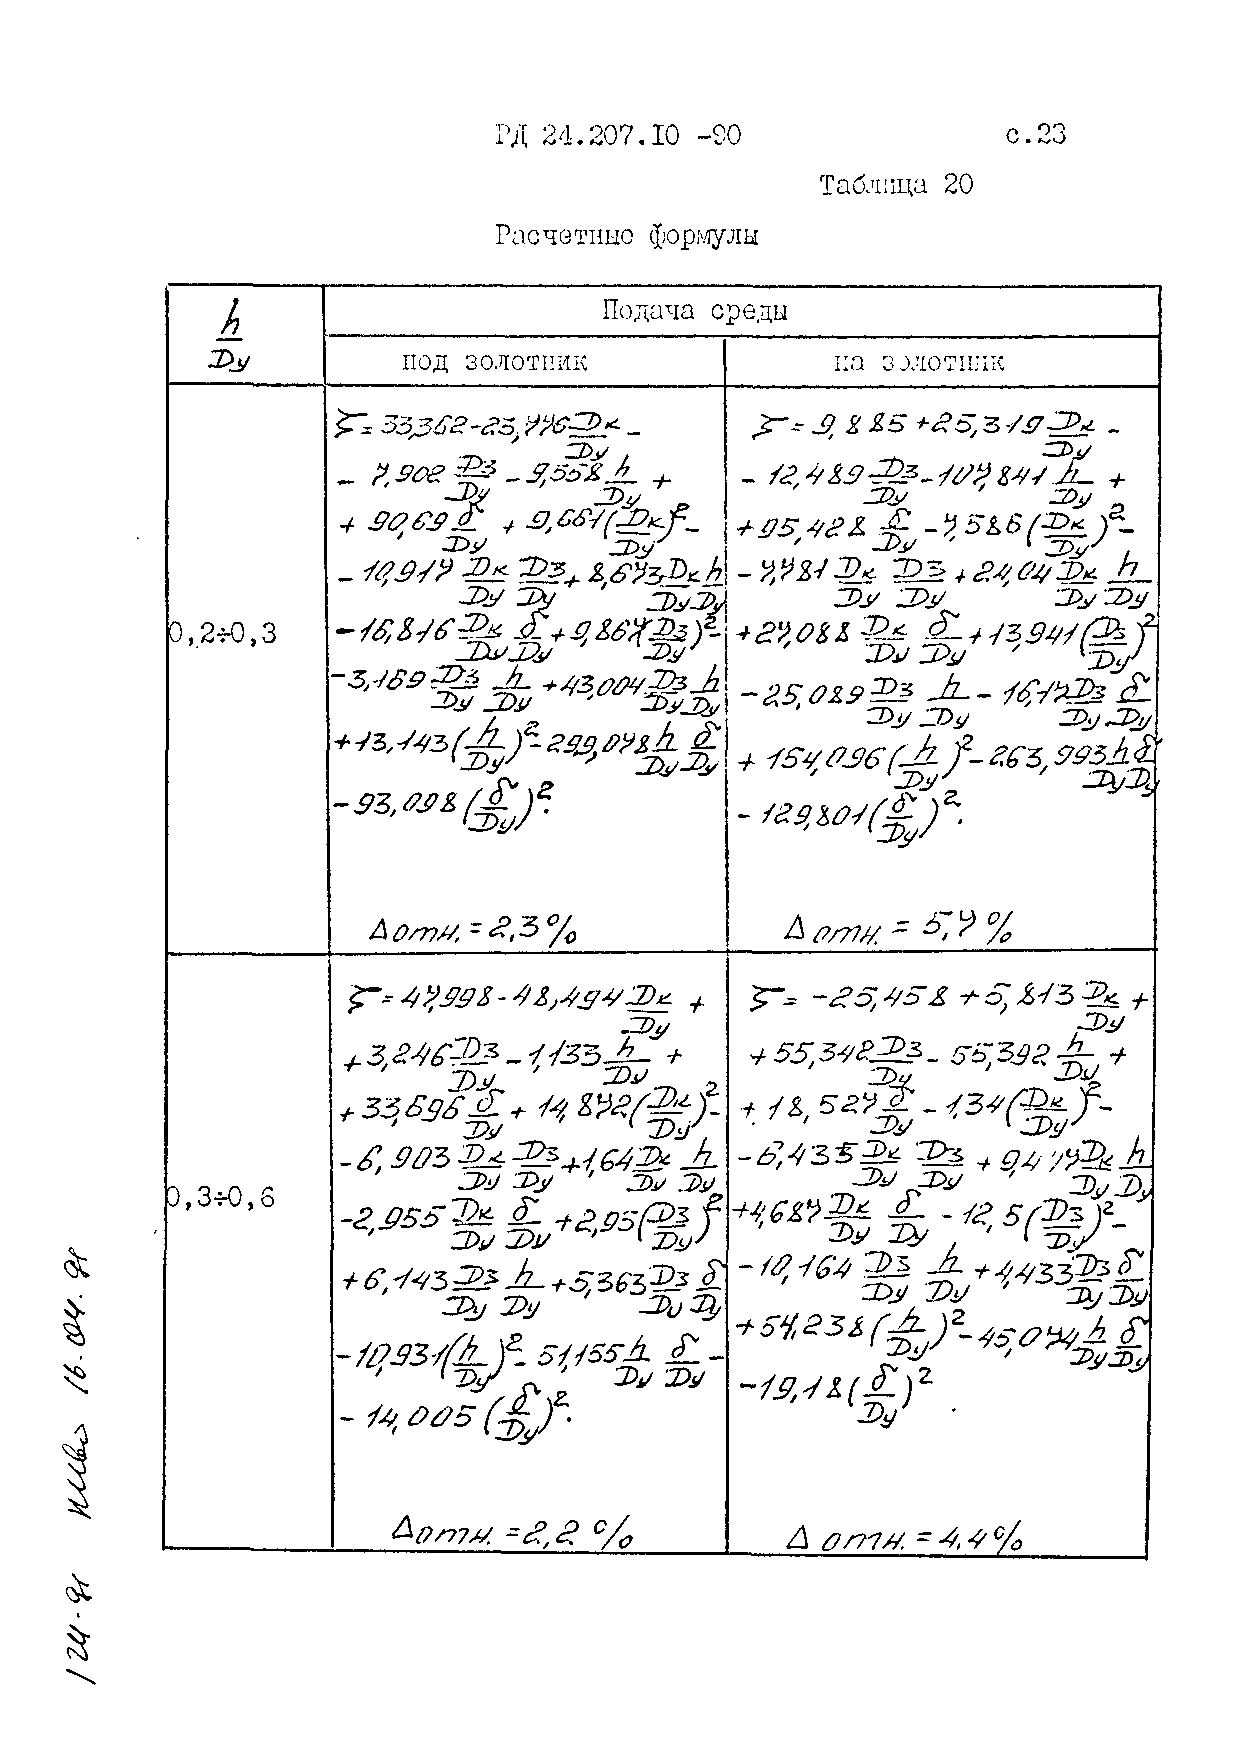 РД 24.207.10 -90 с.23
Таблица 20
Расчетные формулы
h/Dу
Подача среды
под золотник на золотник
0,2÷0,3
ζ = 33,362 - 23,776 Dк/Dу -
- 7,902 Dз/Dу - 9,558 h/Dу +
+ 90,69 δ/Dу + 9,661 (Dк/Dу)² -
- 10,917 Dк/Dу Dз/Dу + 8,673 Dк/Dу h/Dу
- 16,816 Dк/Dу δ/Dу + 9,867 (Dз/Dу)² -
- 3,169 Dз/Dу h/Dу + 43,004 Dз/Dу h/Dу
+ 13,143 (h/Dу)² - 299,078 h/Dу δ/Dу
- 93,098 (δ/Dу)².
Δ отн. = 2,3 %
ζ = 9,885 + 25,319 Dк/Dу -
- 12,489 Dз/Dу - 107,841 h/Dу +
+ 95,428 δ/Dу - 7,586 (Dк/Dу)² -
- 7,781 Dк/Dу Dз/Dу + 24,04 Dк/Dу h/Dу
+ 27,088 Dк/Dу δ/Dу + 13,941 (Dз/Dу)²
- 25,089 Dз/Dу h/Dу - 16,17 Dз/Dу δ/Dу
+ 154,096 (h/Dу)² - 263,993 h/Dу δ/Dу
- 129,801 (δ/Dу)².
Δ отн. = 5,7 %
0,3÷0,6
ζ = 47,998 - 48,494 Dк/Dу +
+ 3,246 Dз/Dу - 1,133 h/Dу +
+ 33,696 δ/Dу + 14,872 (Dк/Dу)² -
- 6,903 Dк/Dу Dз/Dу + 1,64 Dк/Dу h/Dу
- 2,955 Dк/Dу δ/Dу + 2,95 (Dз/Dу)²
+ 6,143 Dз/Dу h/Dу + 5,363 Dз/Dу δ/Dу
- 10,931 (h/Dу)² - 51,155 h/Dу δ/Dу -
- 14,005 (δ/Dу)².
Δ отн. = 2,2 %
ζ = - 25,458 + 5,813 Dк/Dу +
+ 55,342 Dз/Dу - 55,392 h/Dу +
+ 18,527 δ/Dу - 1,34 (Dк/Dу)² -
- 6,435 Dк/Dу Dз/Dу + Dк/Dу h/Dу
+ 4,687 Dк/Dу δ/Dу - 12,5 (Dз/Dу)² -
- 10,164 Dз/Dу h/Dу + 4,433 Dз/Dу δ/Dу
+ 54,238 (h/Dу)² - 45,074 h/Dу δ/Dу
- 19,18 (δ/Dу)²
Δ отн. = 4,4 %
124-91 16.04.91